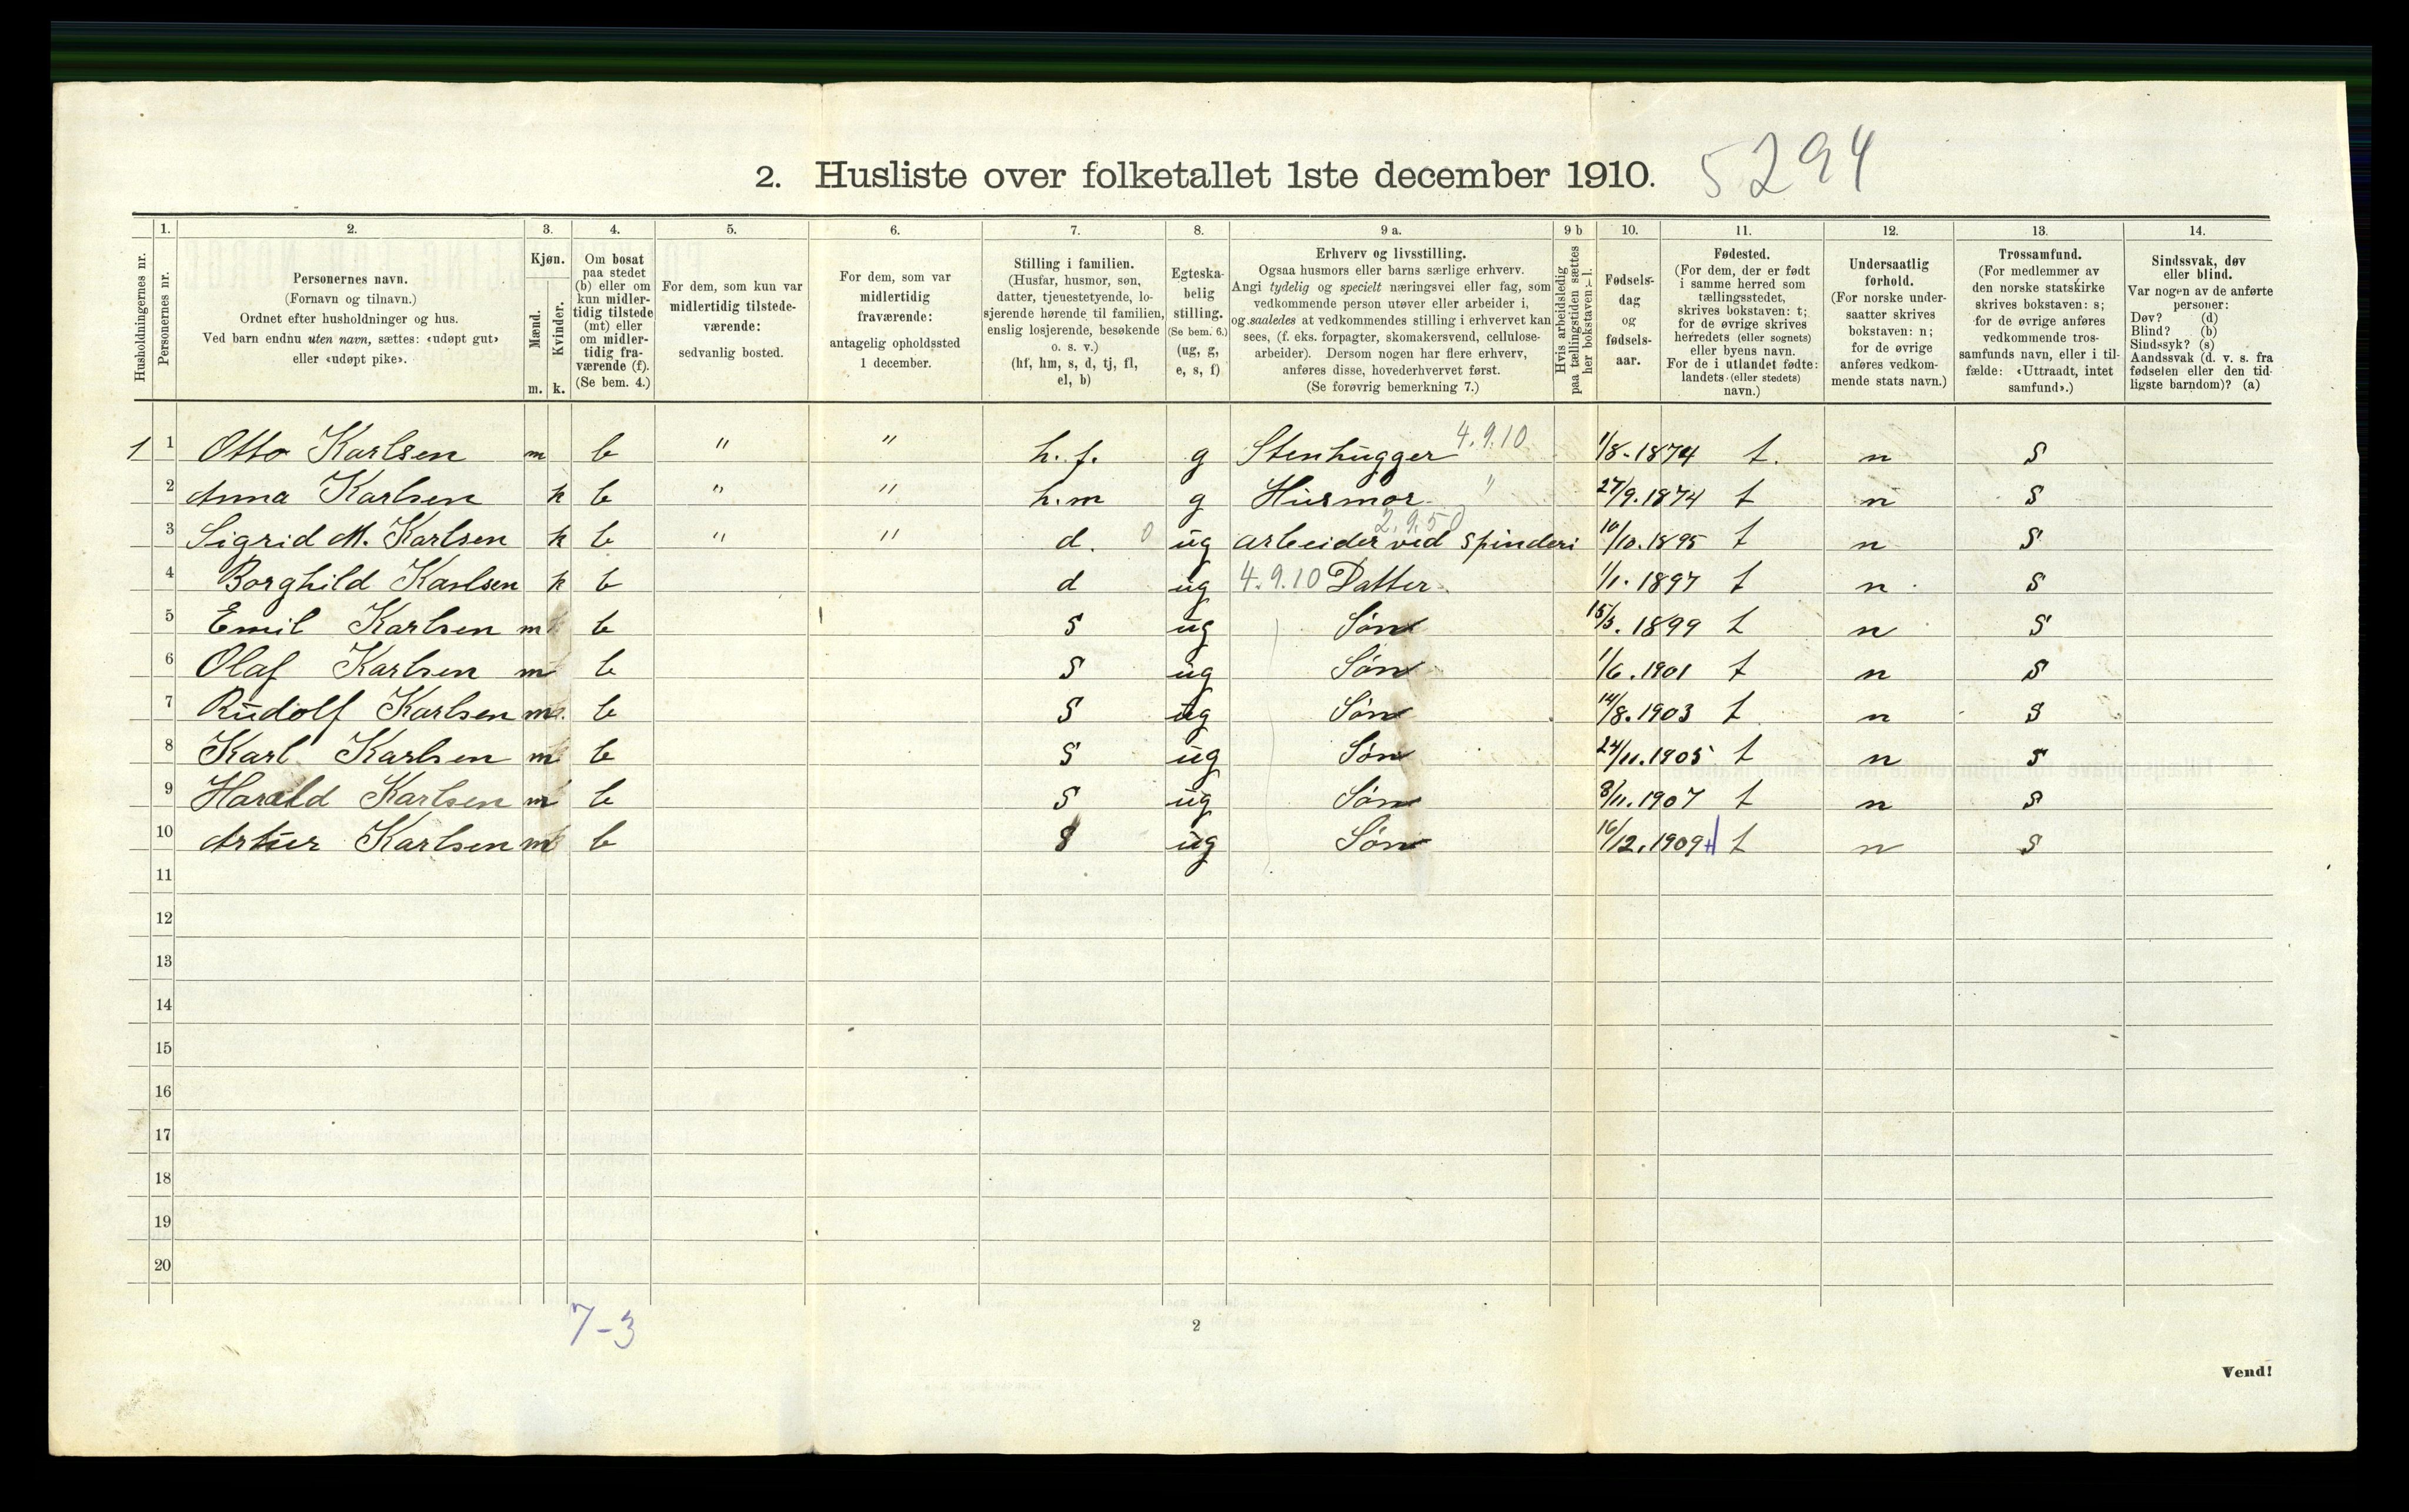 2. Husliste over folketallet 1ste december 1910. 5294
1. 2. 3. 4. 5. 6. 7. 8. 9 a. 9 b 10. 11. 12. 13. 14.
Husholdningernes nr.
Personernes nr.
Personernes navn.
(Fornavn og tilnavn.)
Ordnet efter husholdninger og hus.
Ved barn endnu uten navn, sættes: «udøpt gut»
eller «udøpt pike».
Kjøn.
Mænd.
Kvinder.
m. k.
Om bosat
paa stedet
(b) eller om
kun midler-
tidig tilstede
(mt) eller
om midler-
tidig fra-
værende (f).
(Se bem. 4.)
For dem, som kun var
midlertidig tilstede-
værende:
sedvanlig bosted.
For dem, som var
midlertidig
fraværende:
antagelig opholdssted
1 december.
Stilling i familien.
(Husfar, husmor, søn,
datter, tjenestetyende, lo-
sjerende hørende til familien,
enslig losjerende, besøkende
o. s. v.)
(hf, hm, s, d, tj, fl,
el, b)
Egteska-
belig
stilling.
(Se bem. 6.)
(ug, g,
e, s, f)
Erhverv og livsstilling.
Ogsaa husmors eller barns særlige erhverv.
Angi tydelig og specielt næringsvei eller fag, som
vedkommende person utøver eller arbeider i,
og saaledes at vedkommendes stilling i erhvervet kan
sees, (f. eks. forpagter, skomakersvend, cellulose-
arbeider). Dersom nogen har flere erhverv,
anføres disse, hovederhvervet først.
(Se forøvrig bemerkning 7.)
Hvis arbeidsledig
paa tællingstiden sættes
her bokstaven: l.
Fødsels-
dag
og
fødsels-
aar.
Fødested.
(For dem, der er født
i samme herred som
tællingsstedet,
skrives bokstaven: t;
for de øvrige skrives
herredets (eller sognets)
eller byens navn.
For de i utlandet fødte:
landets (eller stedets)
navn.)
Undersaatlig
forhold.
(For norske under-
saatter skrives
bokstaven: n;
for de øvrige
anføres vedkom-
mende stats navn.)
Trossamfund.
(For medlemmer av
den norske statskirke
skrives bokstaven: s;
for de øvrige anføres
vedkommende tros-
samfunds navn, eller i til-
fælde: «Uttraadt, intet
samfund».)
Sindssvak, døv
eller blind.
Var nogen av de anførte
personer:
Døv? (d)
Blind? (b)
Sindssyk? (s)
Aandssvak (d. v. s. fra
fødselen eller den tid-
ligste barndom)? (a)
1 1 Otto Karlsen m b " " h. f. g Stenhugger 4.9.10 1/8.1874 t. n s
2 Anna Karlsen k b " " h.m g Husmor " 27/9.1874 t n s
3 Sigrid M. Karlsen k b " " d. 0 ug arbeider ved spinderi 2.9.50 10/10.1895 t n s
4 Borghild Karlsen k b d ug 4.9.10 Datter 1/1.1897 t n s
5 Emil Karlsen m b s ug Søn 15/3.1899 t n s
6 Olaf Karlsen m b s ug Søn 1/6.1901 t n s
7 Rudolf Karlsen m b s ug Søn 14/8.1903 t n s
8 Karl Karlsen m b s ug Søn 24/11.1905 t n s
9 Harald Karlsen m b s ug Søn 8/11.1907 t n s
10 Artur Karlsen m b s ug Søn 16/12.1909 t n s
11
12
13
14
15
16
17
18
19
20
7-3
2
Vend!